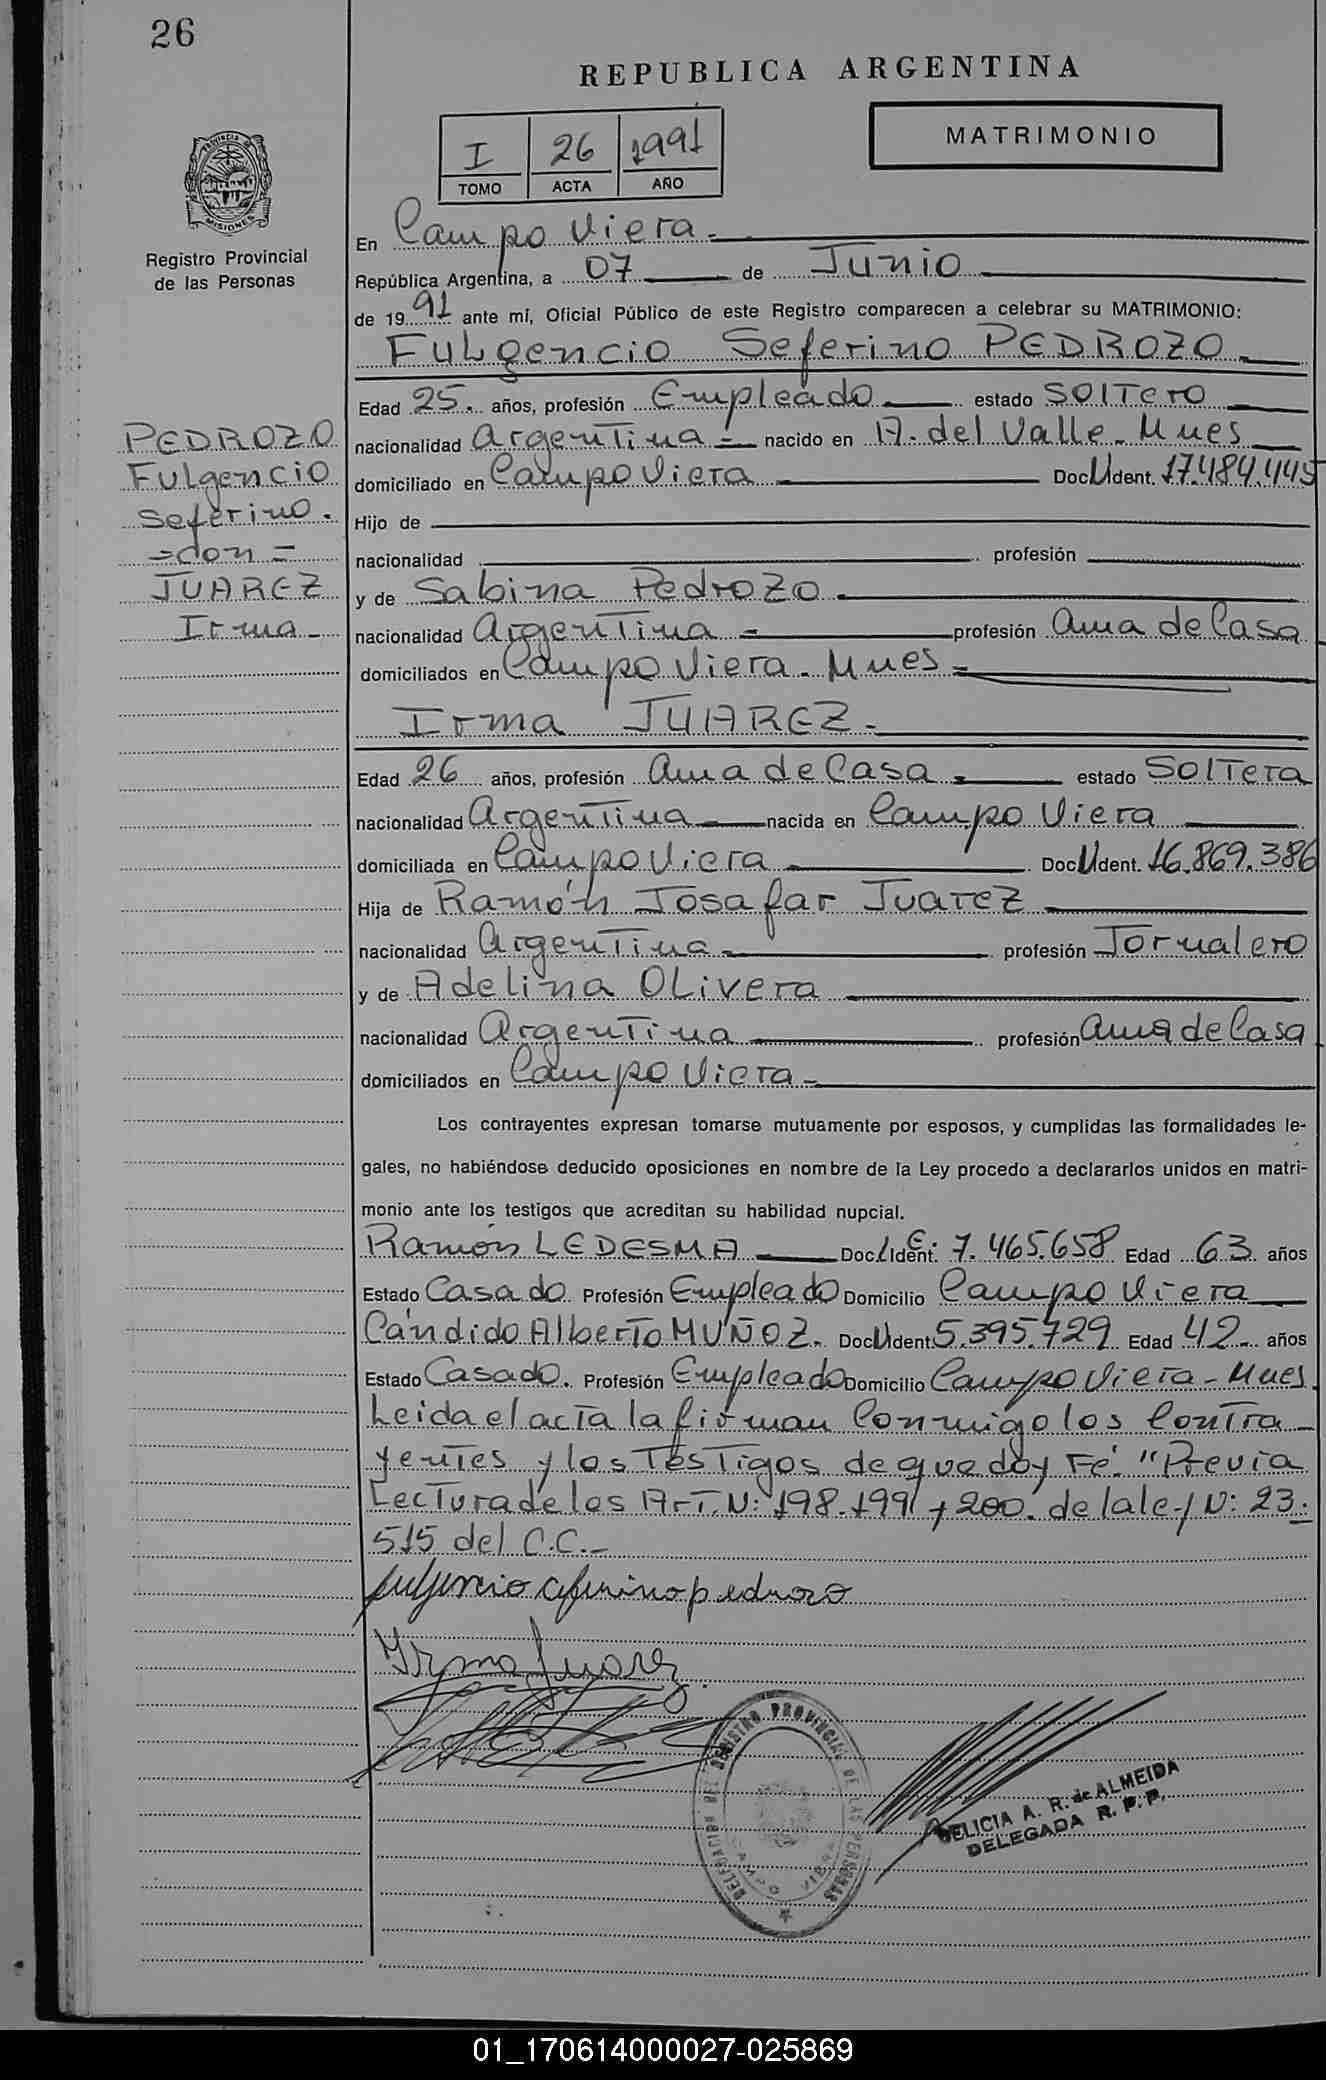 26
REPUBLICA ARGENTINA
MATRIMONIO
I 26 1991
TOMO ACTA AÑO
PROVINCIA DE
MISIONES
Registro Provincial
de las Personas
En Campo Viera.
República Argentina, a 07 de Junio
de 1991 ante mí, Oficial Público de este Registro comparecen a celebrar su MATRIMONIO:
Fulgencio Seferino PEDROZO
Edad 25. años, profesión Empleado estado Soltero
PEDROZO
Fulgencio
Seferino.
=con=
JUAREZ
Irma
nacionalidad Argentina nacido en A. del Valle. Mnes
domiciliado en Campo Viera Doc U Ident. 17.484.445
Hijo de
nacionalidad profesión
y de Sabina Pedrozo
nacionalidad Argentina profesión Ama de Casa
domiciliados en Campo Viera. Mnes
Irma JUAREZ.
Edad 26 años, profesión Ama de Casa estado Soltera
nacionalidad Argentina nacida en Campo Viera
domiciliada en Campo Viera Doc U Ident. 16.869.386
Hija de Ramón Josafar Juarez
nacionalidad Argentina profesión Jornalero
y de Adelina Olivera
nacionalidad Argentina profesión Ama de Casa
domiciliados en Campo Viera
Los contrayentes expresan tomarse mutuamente por esposos, y cumplidas las formalidades le-
gales, no habiéndose deducido oposiciones en nombre de la Ley procedo a declararlos unidos en matri-
monio ante los testigos que acreditan su habilidad nupcial.
Ramón LEDESMA Doc L.E. Ident. 7.465.658 Edad 63 años
Estado Casado Profesión Empleado Domicilio Campo Viera
Cándido Alberto MUÑOZ. Doc U Ident 5.395.729 Edad 42 años
Estado Casado. Profesión Empleado Domicilio Campo Viera - Mnes
Leida el acta la firman conmigo los contra-
yentes y los testigos de que doy Fé. "Previa
Lectura de los Art. Nº 198.199 y 200. de la ley Nº 23.
515 del C.C.
fulgencio ceferino pedrozo
Irma Juarez
DELEGACION DEL REGISTRO PROVINCIAL DE LAS PERSONAS
CAMPO VIERA
DELICIA A. R. de ALMEIDA
DELEGADA R. P. P.
01_170614000027-025869